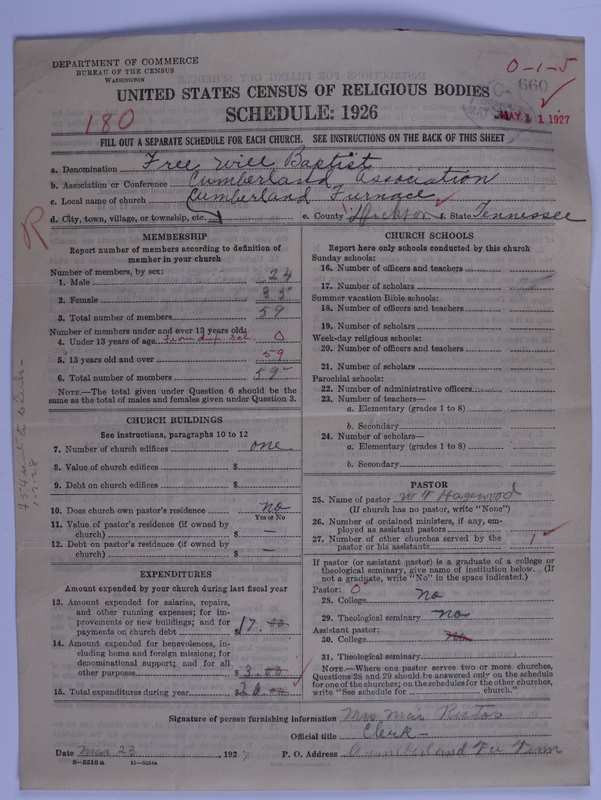 DEPARTMENT OF COMMERCE
BUREAU OF THE CENSUS
WASHINGTON
0-1-5
660
MAY 11 1927
UNITED STATES CENSUS OF RELIGIOUS BODIES
SCHEDULE: 1926
180
FILL OUT A SEPARATE SCHEDULE FOR EACH CHURCH. SEE INSTRUCTIONS ON THE BACK OF THIS SHEET
a. Denomination Free Will Baptist
b. Association or Conference Cumberland Association
c. Local name of church Cumberland Furnace
d. City, town, village, or township, etc. e. County f. State Tennessee
R
MEMBERSHIP
Report number of members according to definition of member in your church
Number of members, by sex:
1. Male 24
2. Female 35
3. Total number of members 59
Number of members under and over 13 years old:
4. Under 13 years of age 0
5. 13 years old and over 59
6. Total number of members 59
NOTE.—The total given under Question 6 should be the same as the total of males and females given under Question 3.
CHURCH BUILDINGS
See instructions, paragraphs 10 to 12
7. Number of church edifices one
8. Value of church edifices $
9. Debt on church edifices $
10. Does church own pastor's residence no
Yes or No
11. Value of pastor's residence (if owned by church) $ —
12. Debt on pastor's residence (if owned by church) $ —
EXPENDITURES
Amount expended by your church during last fiscal year
13. Amount expended for salaries, repairs, and other running expenses; for improvements or new buildings; and for payments on church debt $17.00
14. Amount expended for benevolences, including home and foreign missions; for denominational support; and for all other purposes $3.00
15. Total expenditures during year $20.00
CHURCH SCHOOLS
Report here only schools conducted by this church
Sunday schools:
16. Number of officers and teachers
17. Number of scholars
Summer vacation Bible schools:
18. Number of officers and teachers
19. Number of scholars
Week-day religious schools:
20. Number of officers and teachers
21. Number of scholars
Parochial schools:
22. Number of administrative officers
23. Number of teachers—
a. Elementary (grades 1 to 8)
b. Secondary
24. Number of scholars—
a. Elementary (grades 1 to 8)
b. Secondary
PASTOR
25. Name of pastor W T Hagewood
(If church has no pastor, write "None")
26. Number of ordained ministers, if any, employed as assistant pastors
27. Number of other churches served by the pastor or his assistants 1
If pastor (or assistant pastor) is a graduate of a college or theological seminary, give name of institution below. (If not a graduate, write "No" in the space indicated.)
Pastor: 0
28. College no
29. Theological seminary no
Assistant pastor:
30. College no
31. Theological seminary
NOTE.—Where one pastor serves two or more churches, Questions 28 and 29 should be answered only on the schedule for one of the churches; on the schedules for the other churches, write "See schedule for church."
Signature of person furnishing information Mrs
Official title Clerk
Date Mar 23, 1927 P. O. Address Cumberland Fur Tenn
8—5518 a